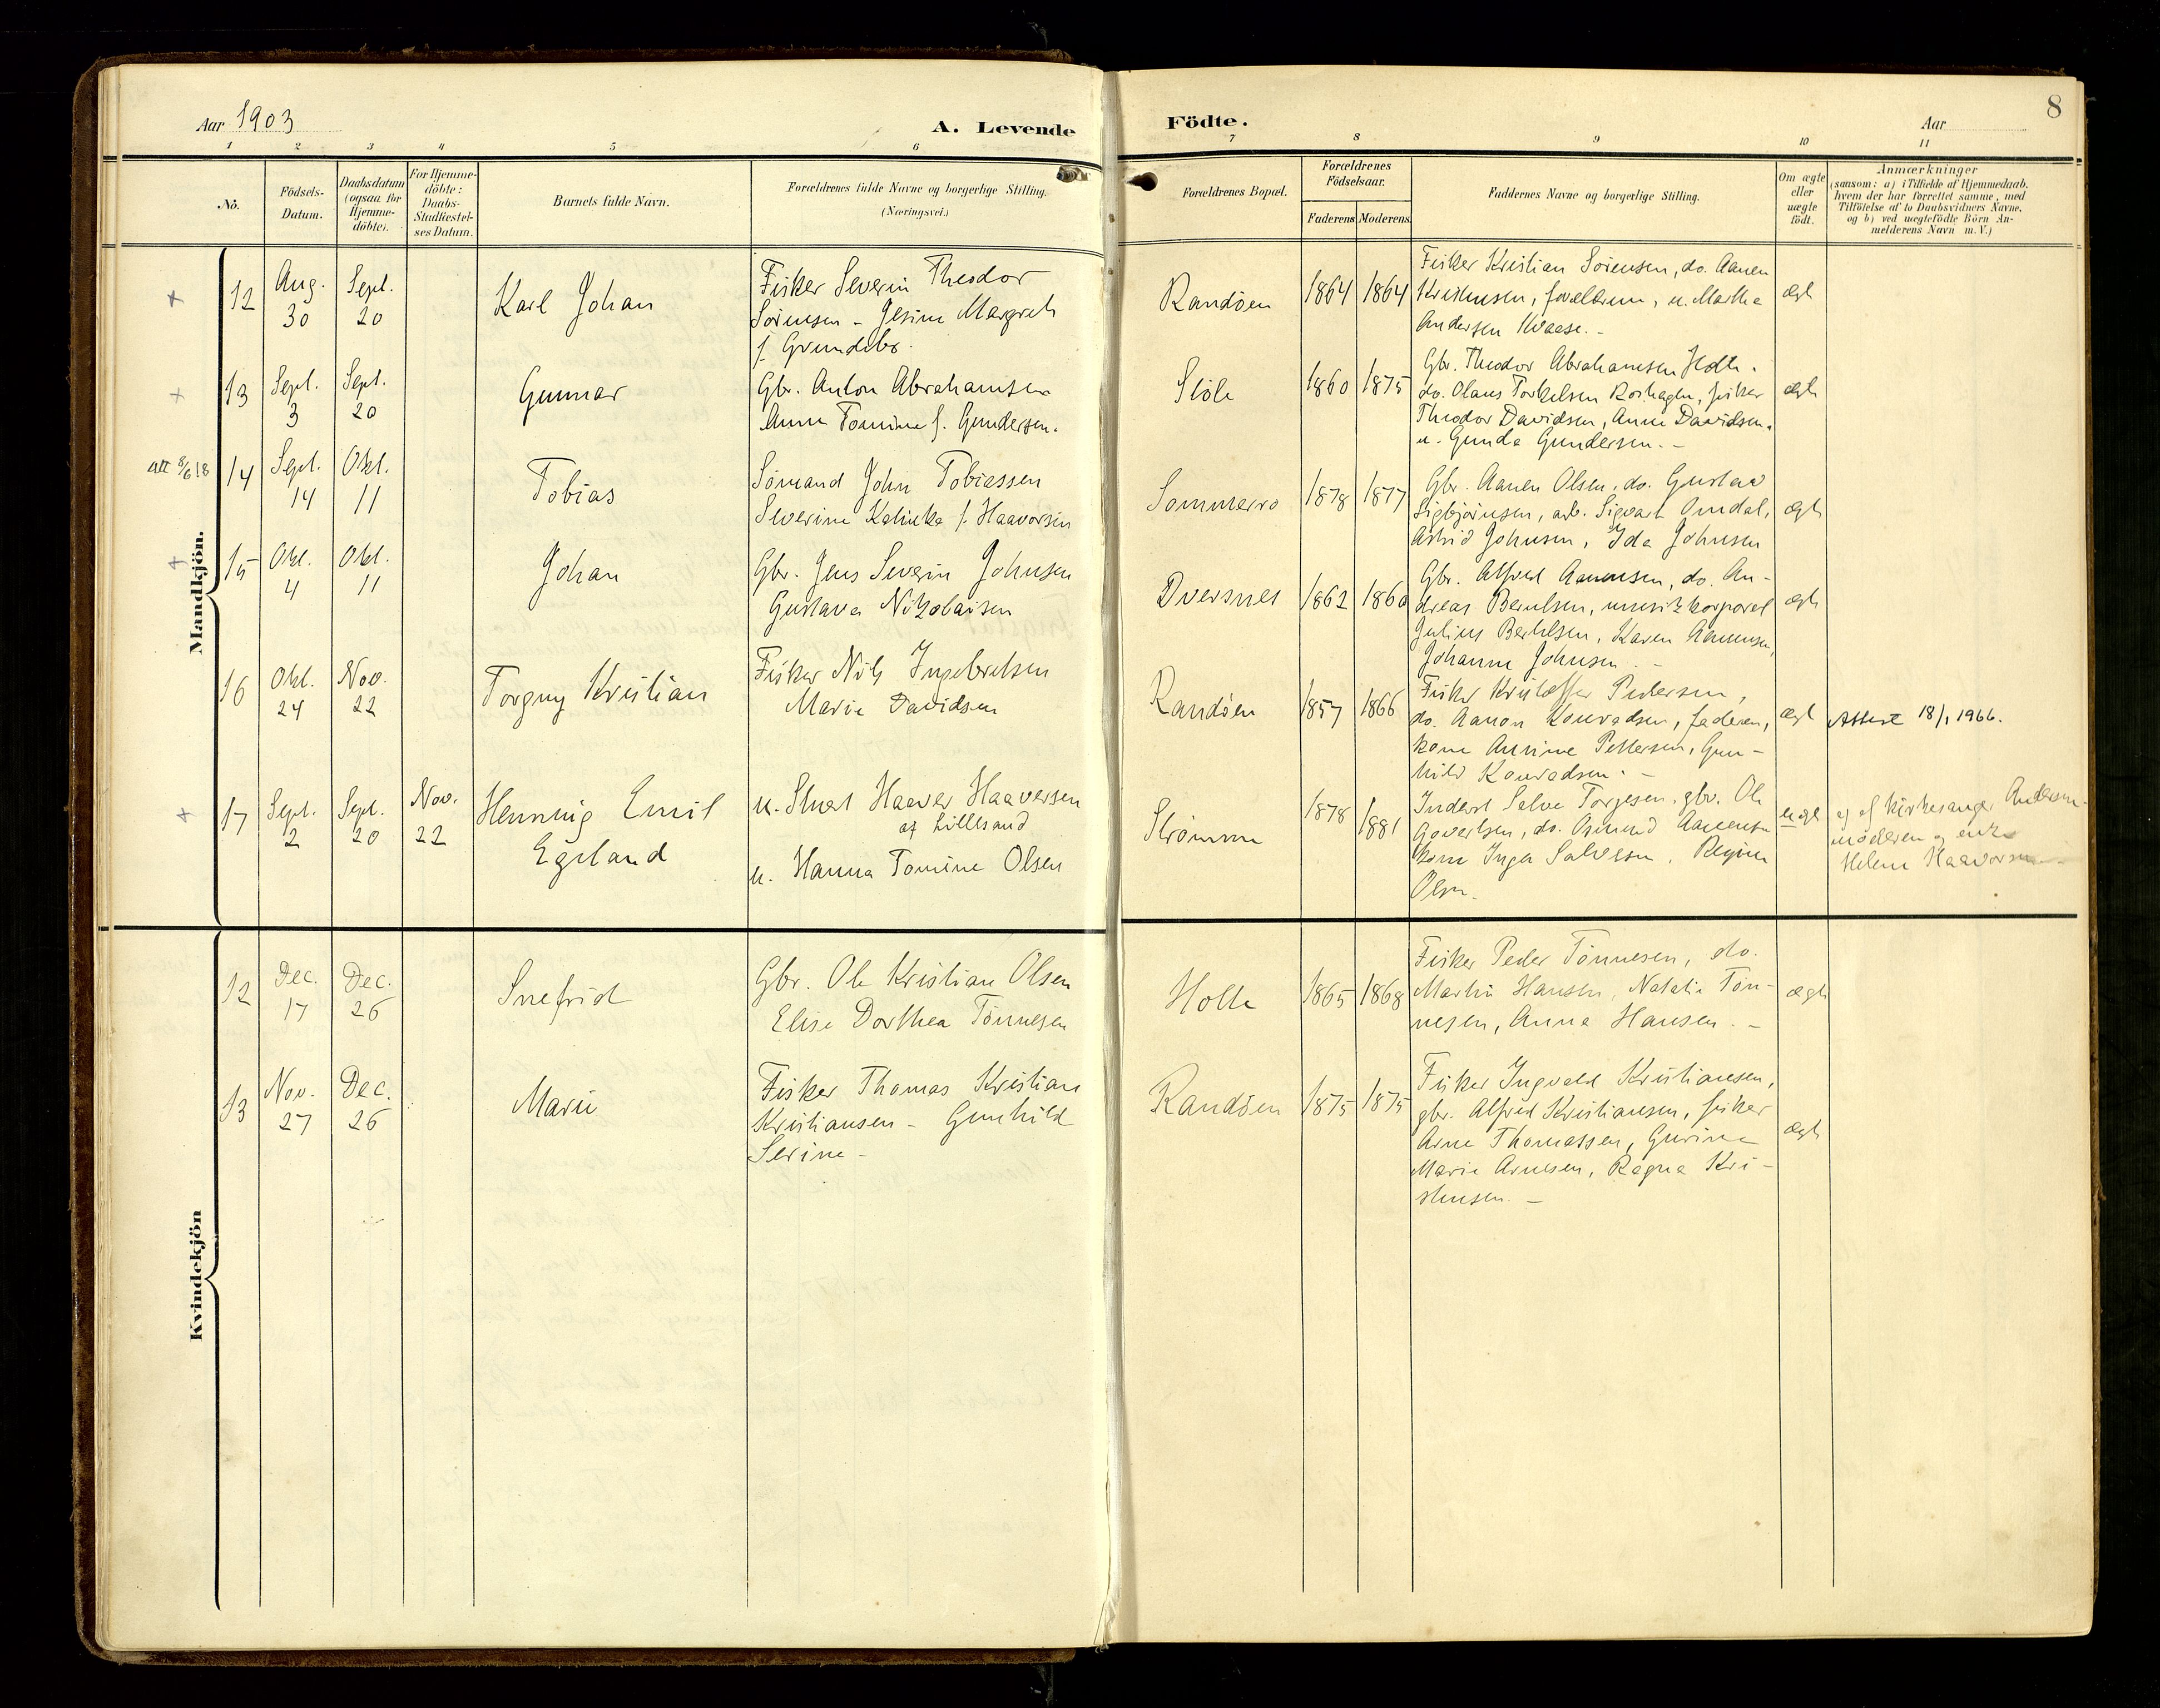 8
Aar 1903
A. Levende
Födte.
Aar
1 2 3 4 5 6 7 8 9 10 11
No.
Födsels-
Datum.
Daabsdatum
(ogsaa for
Hjemme-
döbte).
For Hjemme-
döbte:
Daabs-
Stadfæstel-
ses Datum.
Barnets fulde Navn.
Forældrenes fulde Navne og borgerlige Stilling.
(Næringsvei.)
Forældrenes Bopæl.
Forældrenes
Födselsaar.
Faderens Moderens
Faddernes Navne og borgerlige Stilling.
Om ægte
eller
uægte
födt.
Anmærkninger
(saasom: a) i Tilfælde af Hjemmedaab,
hvem der har forrettet samme, med
Tilföielse af to Daabsvidners Navne,
og b) ved uægtefödte Börn An-
melderens Navn m. V.)
Mandkjön.
12
Aug.
30
Sept.
20
Karl Johan
Fisker Severin Theodor
Sörensen - Jesine Margreth
f.
Randöen
1864 1864
Fisker Kristian Sörensen, do. Aanen
Kristensen, forældrene, u. Martha
Andersen Kvaase. -
ægte
13
Sept.
3
Sept.
20
Gunnar
Gbr. Anton Abrahamsen
Anne Tomine f. Gundersen.
Stöle
1860 1875
Gbr. Theodor Abrahamsen Holte.
do. Olaus Torkelsen fisker
Theodor Davidsen, Anne Davidsen.
u. Gunda Gundersen. -
ægte
att 8/6 18
14
Sept.
14
Okt.
11
Tobias
Sömand John Tobiassen
Severine f. Haavorsen
Sommerro
1878 1877
Gbr. Aanen Olsen, do. Gustav
Sigbjörnsen, arb. Sigvart Omdal,
Astrid Johnsen, Ida Johnsen
ægte
15
Okt.
4
Okt.
11
Johan
Gbr. Jens Severin Johnsen
Gustava Nikolaisen
Dversnes
1862 1860
Gbr. Alfred Aanensen, do. An-
dreas Berntsen, musikkorporal
Julius Berntsen, Karen Aanensen,
Johanne Johnsen. -
ægte
16
Okt.
24
Nov.
22
Torgny Kristian
Fisker Nils Ingebretsen
Marie Davidsen
Randöen
1857 1866
Fisker Kristoffer Pedersen,
do. Aanon Konradsen, faderen,
kone Pettersen, Gun-
hild Konradsen. -
ægte
Attest 18/1 1966.
17
Sept.
2
Sept.
20
Nov.
22
Henning Emil
Egeland
u. Haaver Haaversen
af Lillesand
u. Hanna Tomine Olsen
Strömme
1878 1881
Inderst Salve Torgesen, gbr. Ole
Goverlsen, do. Osmund Aanensen
kone Inger Salvesen, Regine
Olsen.
uægte
a) af kirkesanger Andersen.
moderen og enke
Helene Haavorsen
Kvindekjön
12
Dec.
17
Dec.
26
Snefrid
Gbr. Ole Kristian Olsen
Elise Dorthea Tönnesen
Holte
1865 1868
Fisker Peder Tönnesen, do.
Martin Hansen, Natalie Tön-
nesen, Anna Hansen. -
ægte
13
Nov.
27
Dec.
26
Marie
Fisker Thomas Kristian
Kristiansen - Gunhild
Serine -
Randöen
1875 1875
Fisker Ingvald Kristiansen,
gbr. Alfred Kristiansen, fisker
Arne Thomassen, Gurine
Marie Arnesen, Ragna Kri-
stensen. -
ægte